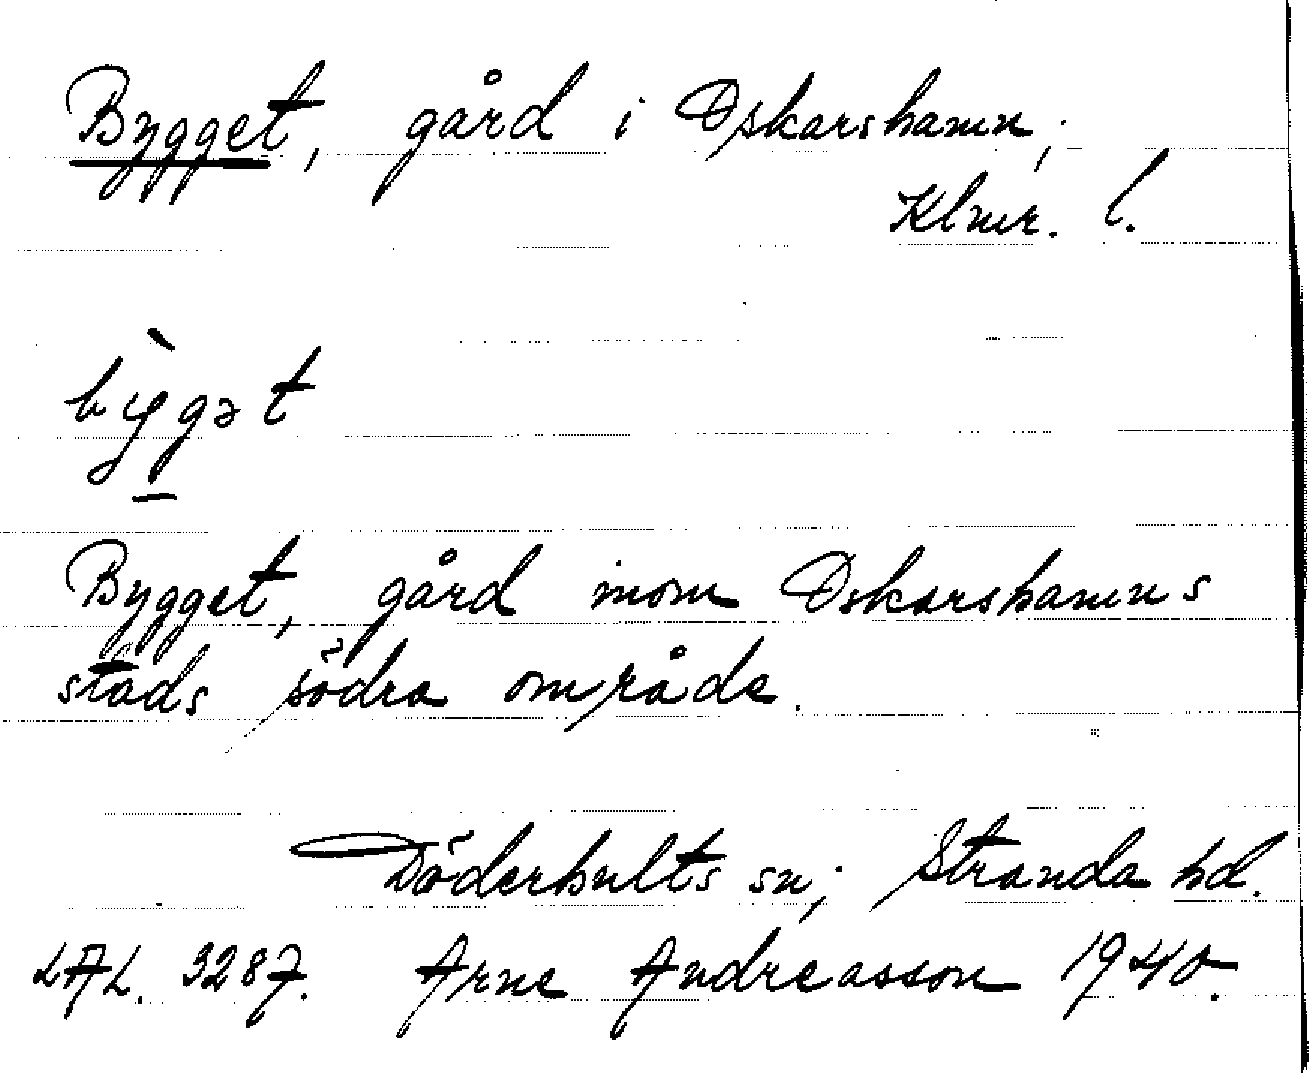 Bygget, gård i Oskarshamn;
Klmr. l.
bỳ̱gət
Bygget, gård inom Oskarshamns
stads södra område.
Döderhults sn; Stranda hd.
LAL. 3287. Arne Andreasson 1940.